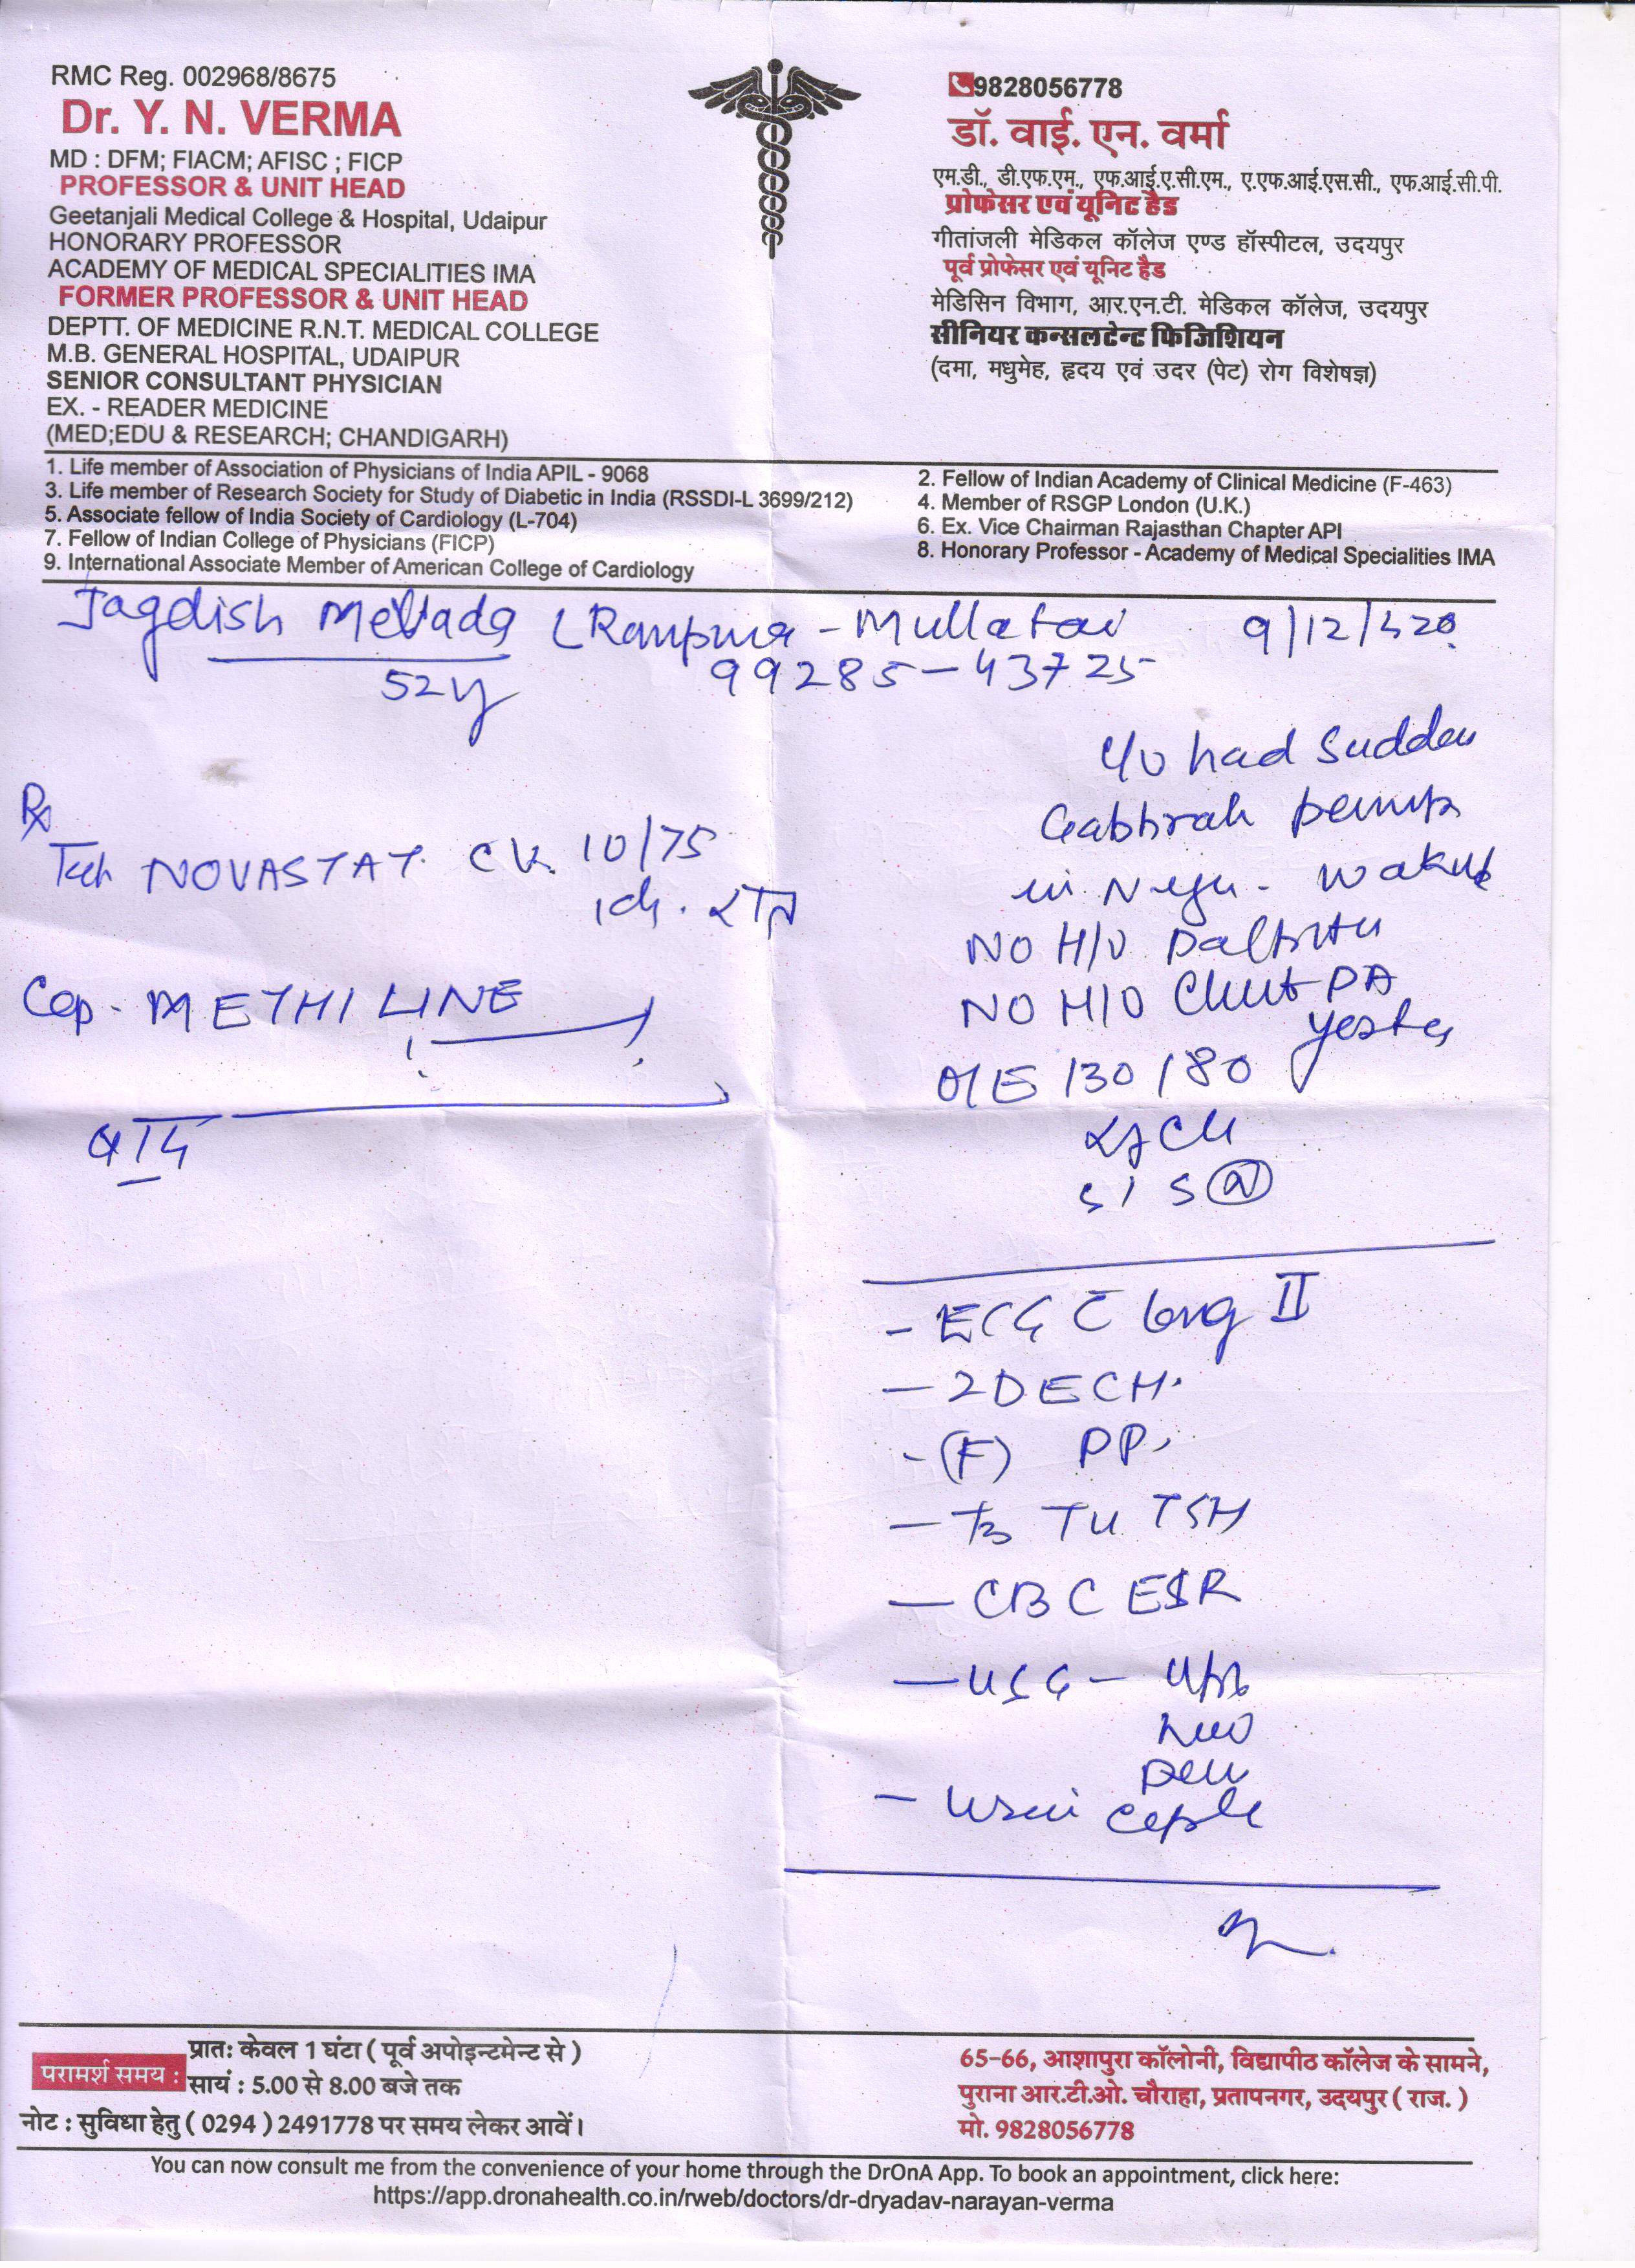 RMC Reg. 002968/8675
Dr. Y. N. VERMA
MD : DFM; FIACM; AFISC ; FICP
PROFESSOR & UNIT HEAD
Geetanjali Medical College & Hospital, Udaipur
HONORARY PROFESSOR
ACADEMY OF MEDICAL SPECIALITIES IMA
FORMER PROFESSOR & UNIT HEAD
DEPTT. OF MEDICINE R.N.T. MEDICAL COLLEGE
M.B. GENERAL HOSPITAL, UDAIPUR
SENIOR CONSULTANT PHYSICIAN
EX. - READER MEDICINE
(MED;EDU & RESEARCH; CHANDIGARH)
9828056778
डॉ. वाई. एन. वर्मा
एम.डी., डी.एफ.एम., एफ.आई.ए.सी.एम., ए.एफ.आई.एस.सी., एफ.आई.सी.पी.
प्रोफेसर एवं यूनिट हैड
गीतांजली मेडिकल कॉलेज एण्ड हॉस्पीटल, उदयपुर
पूर्व प्रोफेसर एवं यूनिट हैड
मेडिसिन विभाग, आर.एन.टी. मेडिकल कॉलेज, उदयपुर
सीनियर कन्सलटेन्ट फिजिशियन
(दमा, मधुमेह, हृदय एवं उदर (पेट) रोग विशेषज्ञ)
1. Life member of Association of Physicians of India APIL - 9068
2. Fellow of Indian Academy of Clinical Medicine (F-463)
3. Life member of Research Society for Study of Diabetic in India (RSSDI-L 3699/212)
4. Member of RSGP London (U.K.)
5. Associate fellow of India Society of Cardiology (L-704)
6. Ex. Vice Chairman Rajasthan Chapter API
7. Fellow of Indian College of Physicians (FICP)
8. Honorary Professor - Academy of Medical Specialities IMA
9. International Associate Member of American College of Cardiology
Jagdish (Rampura - 9/12/
52y 99285-43725
had Sudden
Gabhrah
in
NO H/O
NO H/O
O/E 130/80
S/S (N)
Rx
Tab NOVASTAT CV. 10/75
Cap - METHILINE
- ECG C long II
- 2D ECH.
- (F) PP.
- T3 T4 TSH
- CBC ESR
- USG - Upp
- Urine
परामर्श समय :
प्रातः केवल 1 घंटा ( पूर्व अपोइन्टमेन्ट से )
सायं : 5.00 से 8.00 बजे तक
नोट : सुविधा हेतु ( 0294 ) 2491778 पर समय लेकर आवें।
65-66, आशापुरा कॉलोनी, विद्यापीठ कॉलेज के सामने,
पुराना आर.टी.ओ. चौराहा, प्रतापनगर, उदयपुर ( राज. )
मो. 9828056778
You can now consult me from the convenience of your home through the DrOnA App. To book an appointment, click here:
https://app.dronahealth.co.in/rweb/doctors/dr-dryadav-narayan-verma